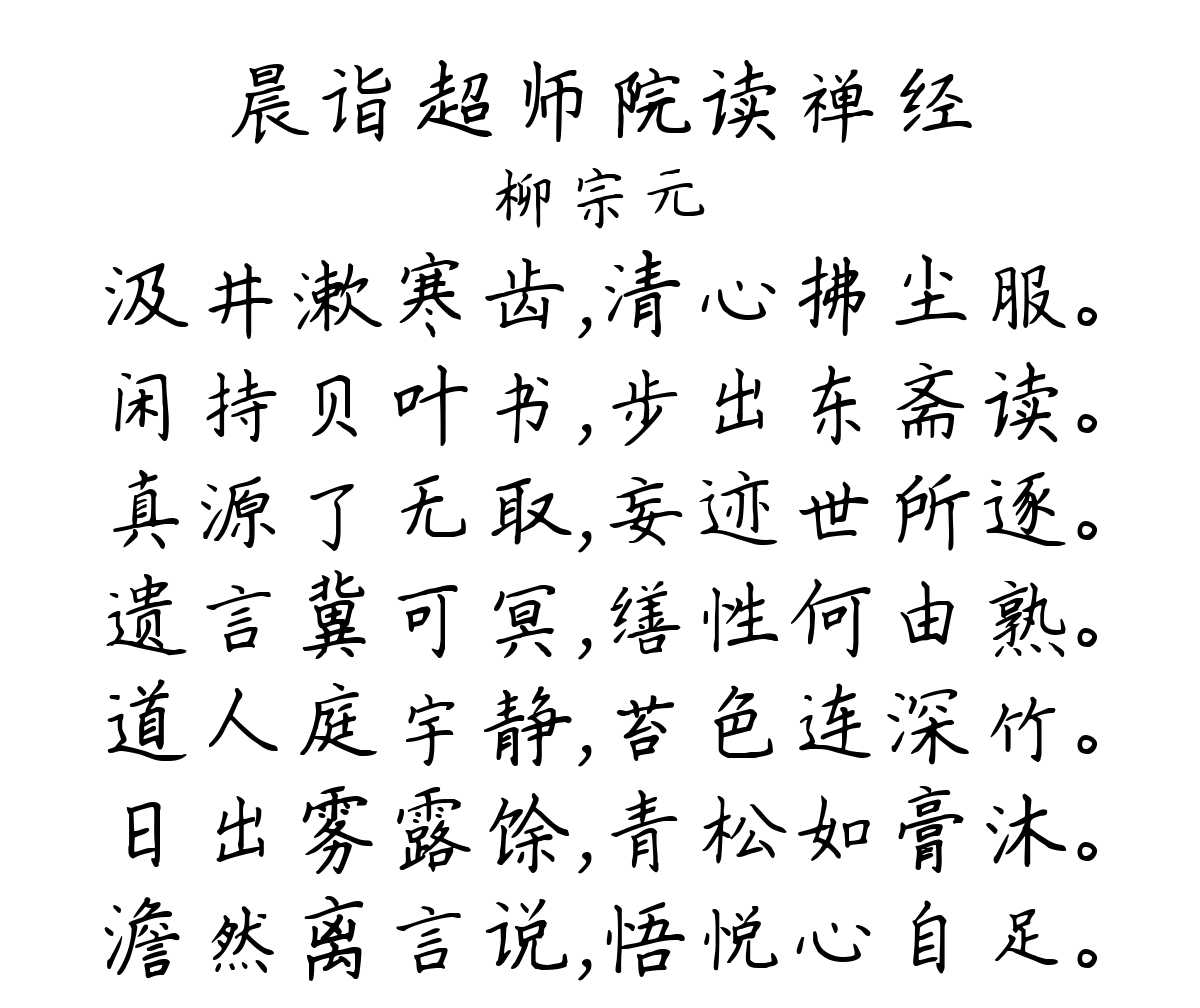 晨诣超师院读禅经
柳宗元
汲井漱寒齿,清心拂尘服。
闲持贝叶书,步出东斋读。
真源了无取,妄迹世所逐。
遗言冀可冥,缮性何由熟。
道人庭宇静,苔色连深竹。
日出雾露馀,青松如膏沐。
澹然离言说,悟悦心自足。